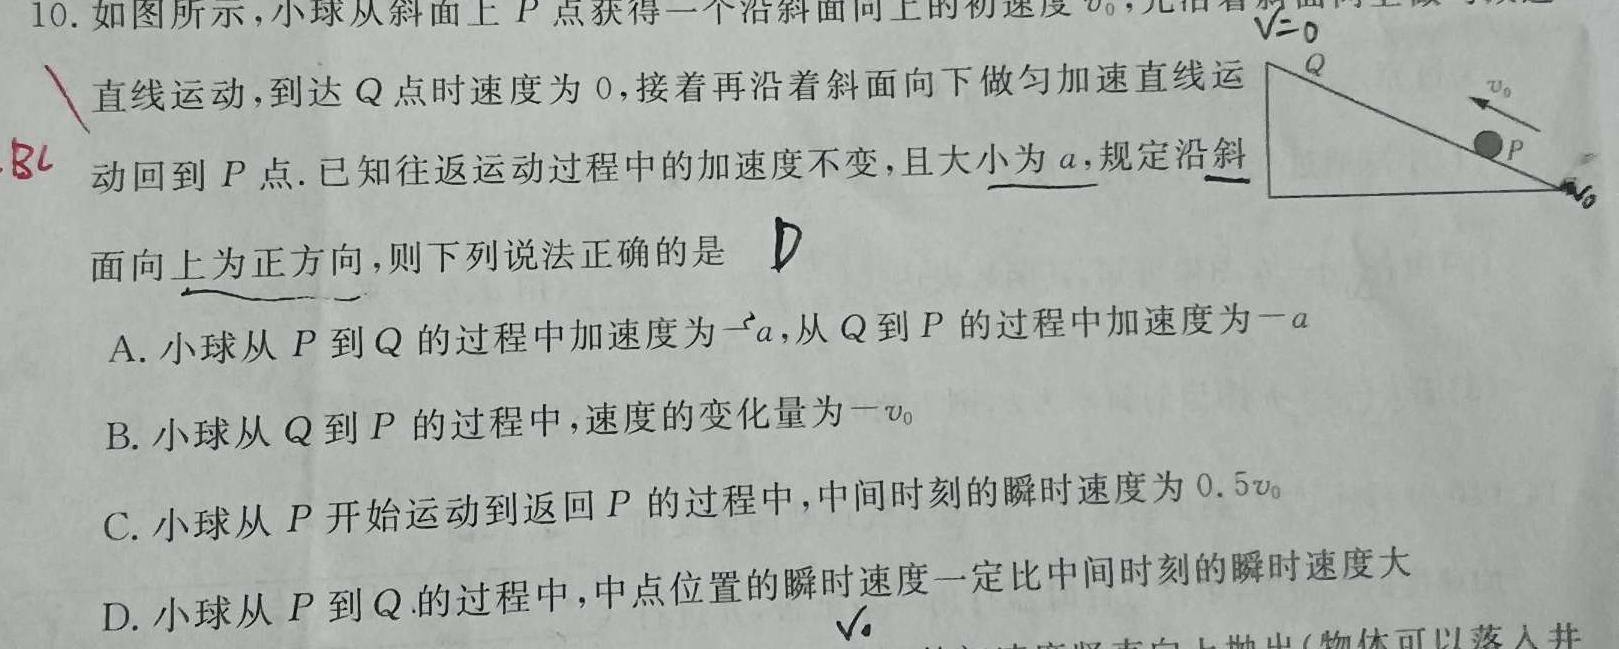 10. 如图所示,小球从斜面上 P 点获得一个沿斜面向上的初速度 v₀,先沿着斜面向上做
V=0
直线运动,到达 Q 点时速度为 0,接着再沿着斜面向下做匀加速直线运
Q
v₀
BC
动回到 P 点.已知往返运动过程中的加速度不变,且大小为 a,规定沿斜
P
v₀
面向上为正方向,则下列说法正确的是 D
A. 小球从 P 到 Q 的过程中加速度为 a,从 Q 到 P 的过程中加速度为 -a
B. 小球从 Q 到 P 的过程中,速度的变化量为 -v₀
C. 小球从 P 开始运动到返回 P 的过程中,中间时刻的瞬时速度为 0.5v₀
D. 小球从 P 到 Q 的过程中,中点位置的瞬时速度一定比中间时刻的瞬时速度大
(物体可以落入井